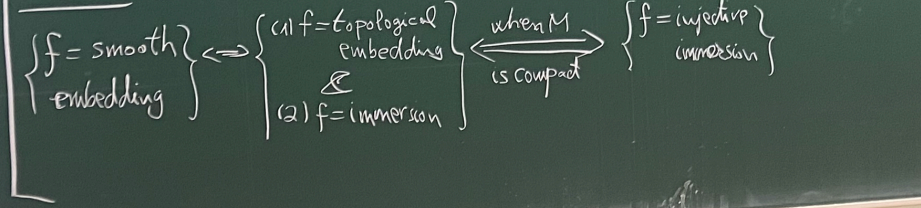 {f = smooth embedding} ⇔ {(1) f = topological embedding & (2) f = immerscon} ⇔ when M is compact {f = injective immersion}